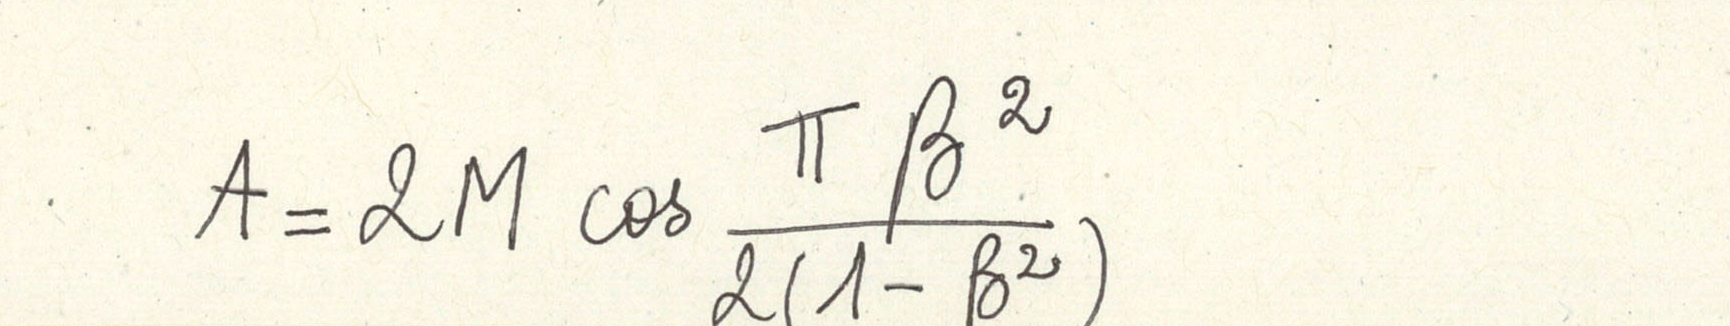 A = 2M cos \frac{\pi \beta^2}{2(1 - \beta^2)}